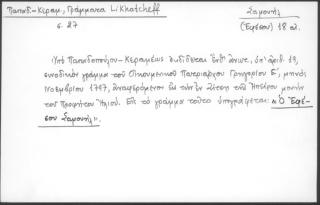 Παπαδ.-Κεραμ., Γράμματα Likhatcheff
σ. 27
Σαμουήλ
(Ἐφέσου) 18 αἰ.
Ὑπὸ Παπαδοπούλου-Κεραμέως ἐκδίδεται ἔνθ' ἄνωτ., ὑπ' ἀριθ. 19,
συνοδικὸν γράμμα τοῦ Οἰκουμενικοῦ Πατριάρχου Γρηγορίου Ε΄, μηνὸς
Νοεμβρίου 1797, ἀναφερόμενον εἰς τὴν ἐν Ζίτσῃ τῆς Ἠπείρου μονὴν
τοῦ Προφήτου Ἠλιού. Εἰς τὸ γράμμα τοῦτο ὑπογράφεται: «Ὁ Ἐφέ-
σου Σαμουήλ».